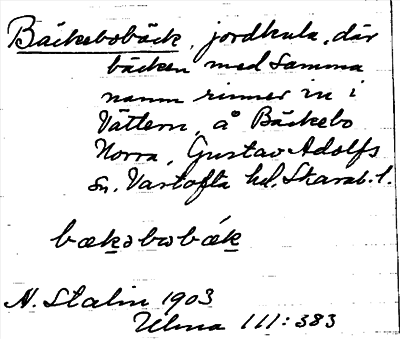 Bäckebobäck, jordkula, där
bäcken med samma
namn rinner in i
Vättern, å Bäckebo
Norra, Gustav Adolfs
sn. Vartofta hd. Skarab. l.
bæk̲əbωbǽk̲
N. Stalin 1903
Ulma 111:383